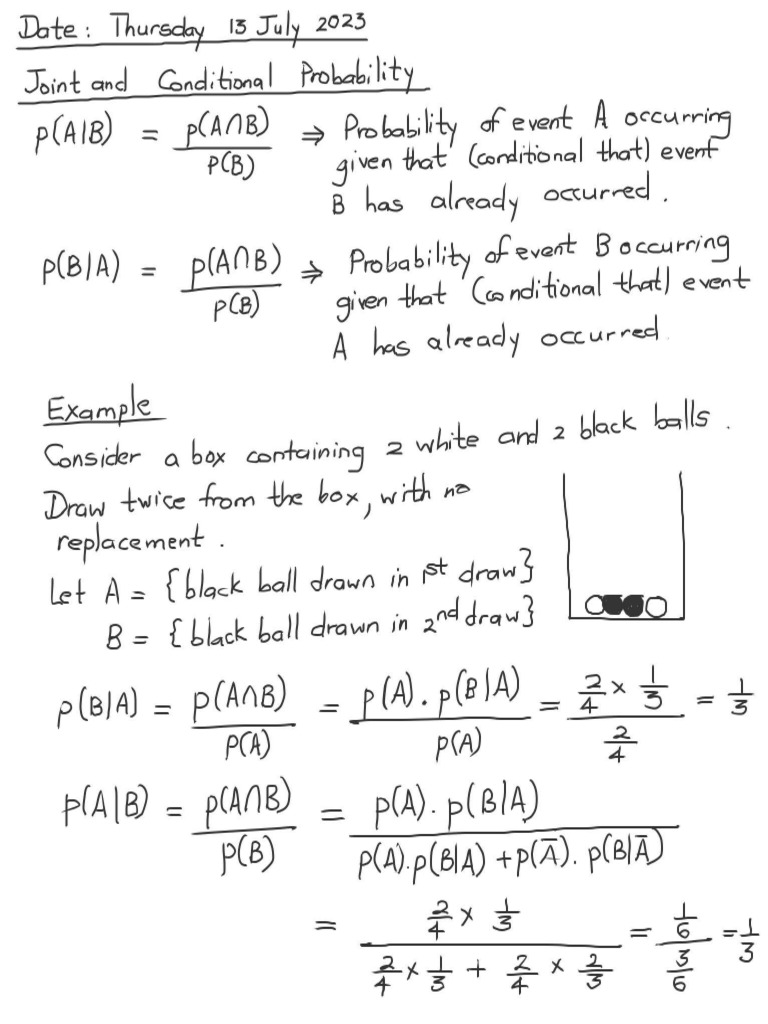 Date: Thursday 13 July 2023
Joint and Conditional Probability
p(A|B) = p(A∩B)/p(B) ⇒ Probability of event A occurring
given that (conditional that) event
B has already occurred.
p(B|A) = p(A∩B)/p(B) ⇒ Probability of event B occurring
given that (conditional that) event
A has already occurred.
Example
Consider a box containing 2 white and 2 black balls.
Draw twice from the box, with no
replacement.
Let A = {black ball drawn in 1st draw}
B = {black ball drawn in 2nd draw}
p(B|A) = p(A∩B)/p(A) = p(A).p(B|A)/p(A) = (2/4 × 1/3)/(2/4) = 1/3
p(A|B) = p(A∩B)/p(B) = p(A).p(B|A)/(p(A).p(B|A) + p(Ā).p(B|Ā))
= (2/4 × 1/3)/(2/4 × 1/3 + 2/4 × 2/3) = (1/6)/(3/6) = 1/3